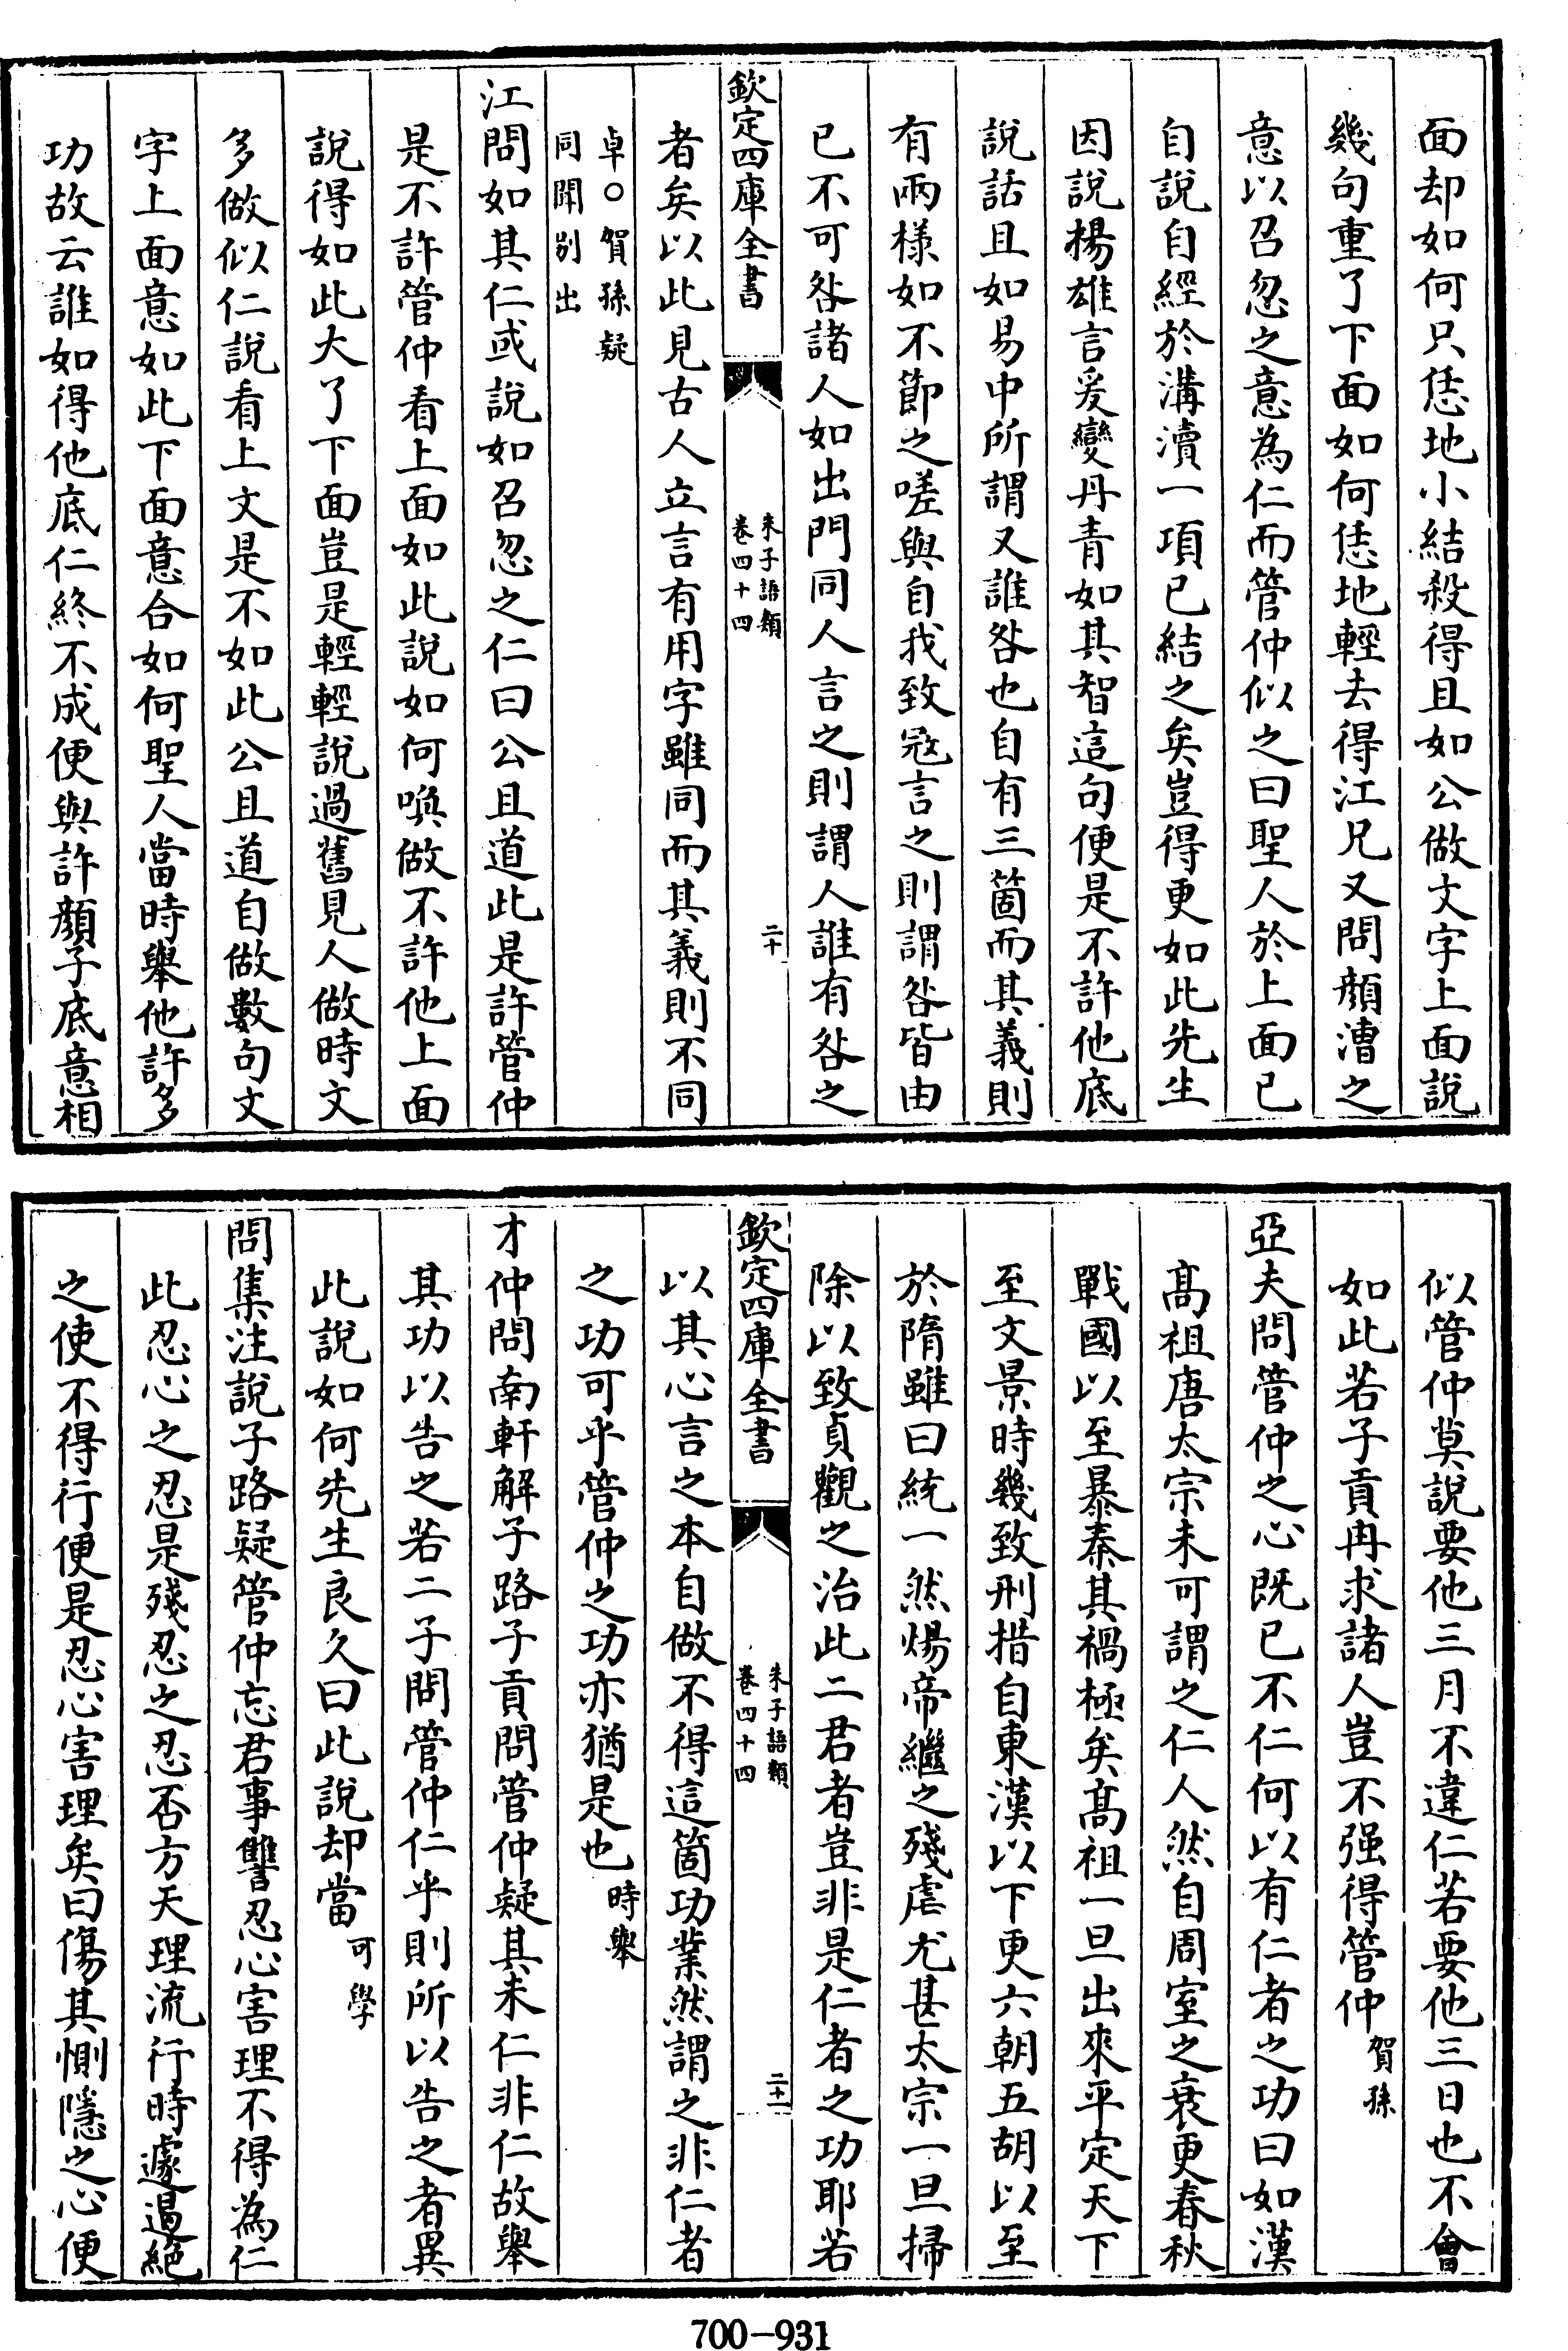 面却如何只恁地小結殺得且如公做文字上面說
幾句重了下面如何恁地輕去得江兄又問顔漕之
意以召忽之意為仁而管仲似之曰聖人於上面已
自說自經於溝瀆一項已結之矣豈得更如此先生
因說楊雄言爰變丹青如其智這句便是不許他底
說話且如易中所謂又誰咎也自有三箇而其義則
有兩様如不節之嗟與自我致宼言之則謂咎皆由
已不可咎諸人如出門同人言之則謂人誰有咎之
欽定四庫全書
朱子語類
卷四十四
二十
者矣以此見古人立言有用字雖同而其義則不同
卓○賀孫疑
同聞别出
江問如其仁或說如召忽之仁曰公且道此是許管仲
是不許管仲看上面如此說如何喚做不許他上面
說得如此大了下面豈是輕輕說過舊見人做時文
多做似仁說看上文是不如此公且道自做數句文
字上面意如此下面意合如何聖人當時舉他許多
功故云誰如得他底仁終不成便與許顔子底意相
似管仲莫說要他三月不違仁若要他三日也不㑹
如此若子貢冉求諸人豈不强得管仲賀孫
亞夫問管仲之心既已不仁何以有仁者之功曰如漢
髙祖唐太宗未可謂之仁人然自周室之衰更春秋
戰國以至暴秦其禍極矣髙祖一旦出來平定天下
至文景時幾致刑措自東漢以下更六朝五胡以至
於隋雖曰統一然煬帝繼之殘虐尤甚太宗一旦掃
除以致貞觀之治此二君者豈非是仁者之功耶若
欽定四庫全書
朱子語類
卷四十四
二十一
以其心言之本自做不得這箇功業然謂之非仁者
之功可乎管仲之功亦猶是也時舉
才仲問南軒解子路子貢問管仲疑其未仁非仁故舉
其功以告之若二子問管仲仁乎則所以告之者異
此說如何先生良久曰此說却當可學
問集注說子路疑管仲忘君事讐忍心害理不得為仁
此忍心之忍是殘忍之忍否方天理流行時遽遏絶
之使不得行便是忍心害理矣曰傷其惻隱之心便
700-931